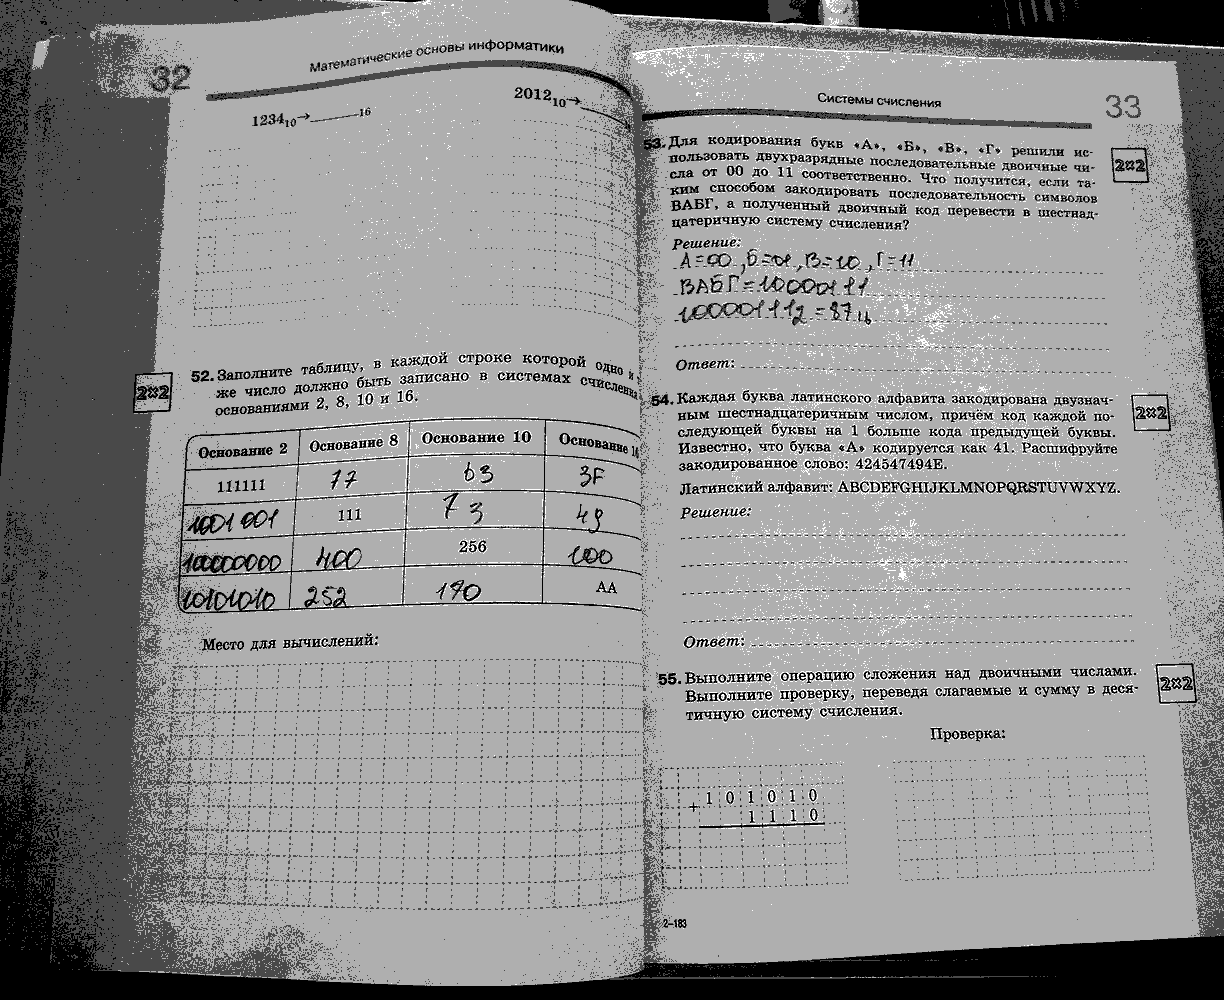 32
Математические основы информатики
1234₁₀→______₁₆
2012₁₀→
52. Заполните таблицу, в каждой строке которой одно и
же число должно быть записано в системах счислени
основаниями 2, 8, 10 и 16.
2÷2
Основание 2 Основание 8 Основание 10 Основание 16
111111 77 63 3F
1001001 111 73 49
100000000 400 256 100
10101010 252 170 AA
Место для вычислений:
Системы счисления
33
53. Для кодирования букв «А», «Б», «В», «Г» решили ис-
пользовать двухразрядные последовательные двоичные чи-
сла от 00 до 11 соответственно. Что получится, если та-
ким способом закодировать последовательность символов
ВАБГ, а полученный двоичный код перевести в шестнад-
цатеричную систему счисления?
2÷2
Решение:
А=00, Б=01, В=10, Г=11
ВАБГ=10000111
10000111₂ =87
Ответ:
54. Каждая буква латинского алфавита закодирована двузнач-
ным шестнадцатеричным числом, причём код каждой по-
следующей буквы на 1 больше кода предыдущей буквы.
Известно, что буква «А» кодируется как 41. Расшифруйте
закодированное слово: 424547494E.
2÷2
Латинский алфавит: ABCDEFGHIJKLMNOPQRSTUVWXYZ.
Решение:
Ответ:
55. Выполните операцию сложения над двоичными числами.
Выполните проверку, переведя слагаемые и сумму в деся-
тичную систему счисления.
2÷2
Проверка:
1 0 1 0 1 0
+
1 1 1 0
2–183